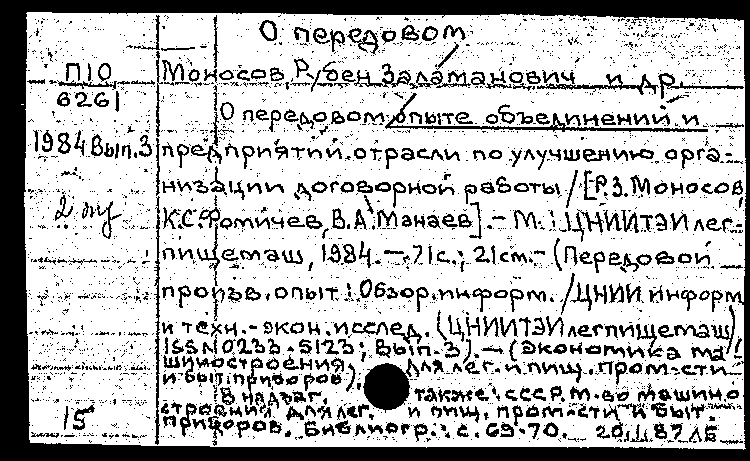 О передовом
П10
6261
Моносов, Рубен Заламанович и др.
О передовом опыте объединений и
1984 Вып.3 предприятий отрасли по улучшению орга-
низации договорной работы / [Р.З. Моносов,
2 экз
К.С. Фомичев, В.А. Манаев]. - М.: ЦНИИТЭИлег-
пищемаш, 1984. - 71с.; 21см. - (Передовой
произв. опыт: Обзор. информ. / ЦНИИ информ.
и техн.-экон. исслед. (ЦНИИТЭИлегпищемаш),
ISSN 0233-5123; Вып. 3). - (Экономика ма-
шиностроения, для лег. и пищ. пром-сти
и быт. приборов).
В надзаг. также: СССР. М-во машино-
строения для лег. и пищ. пром-сти и быт.
15
приборов. Библиогр.: с. 69-70. 20.1.87 ЛБ